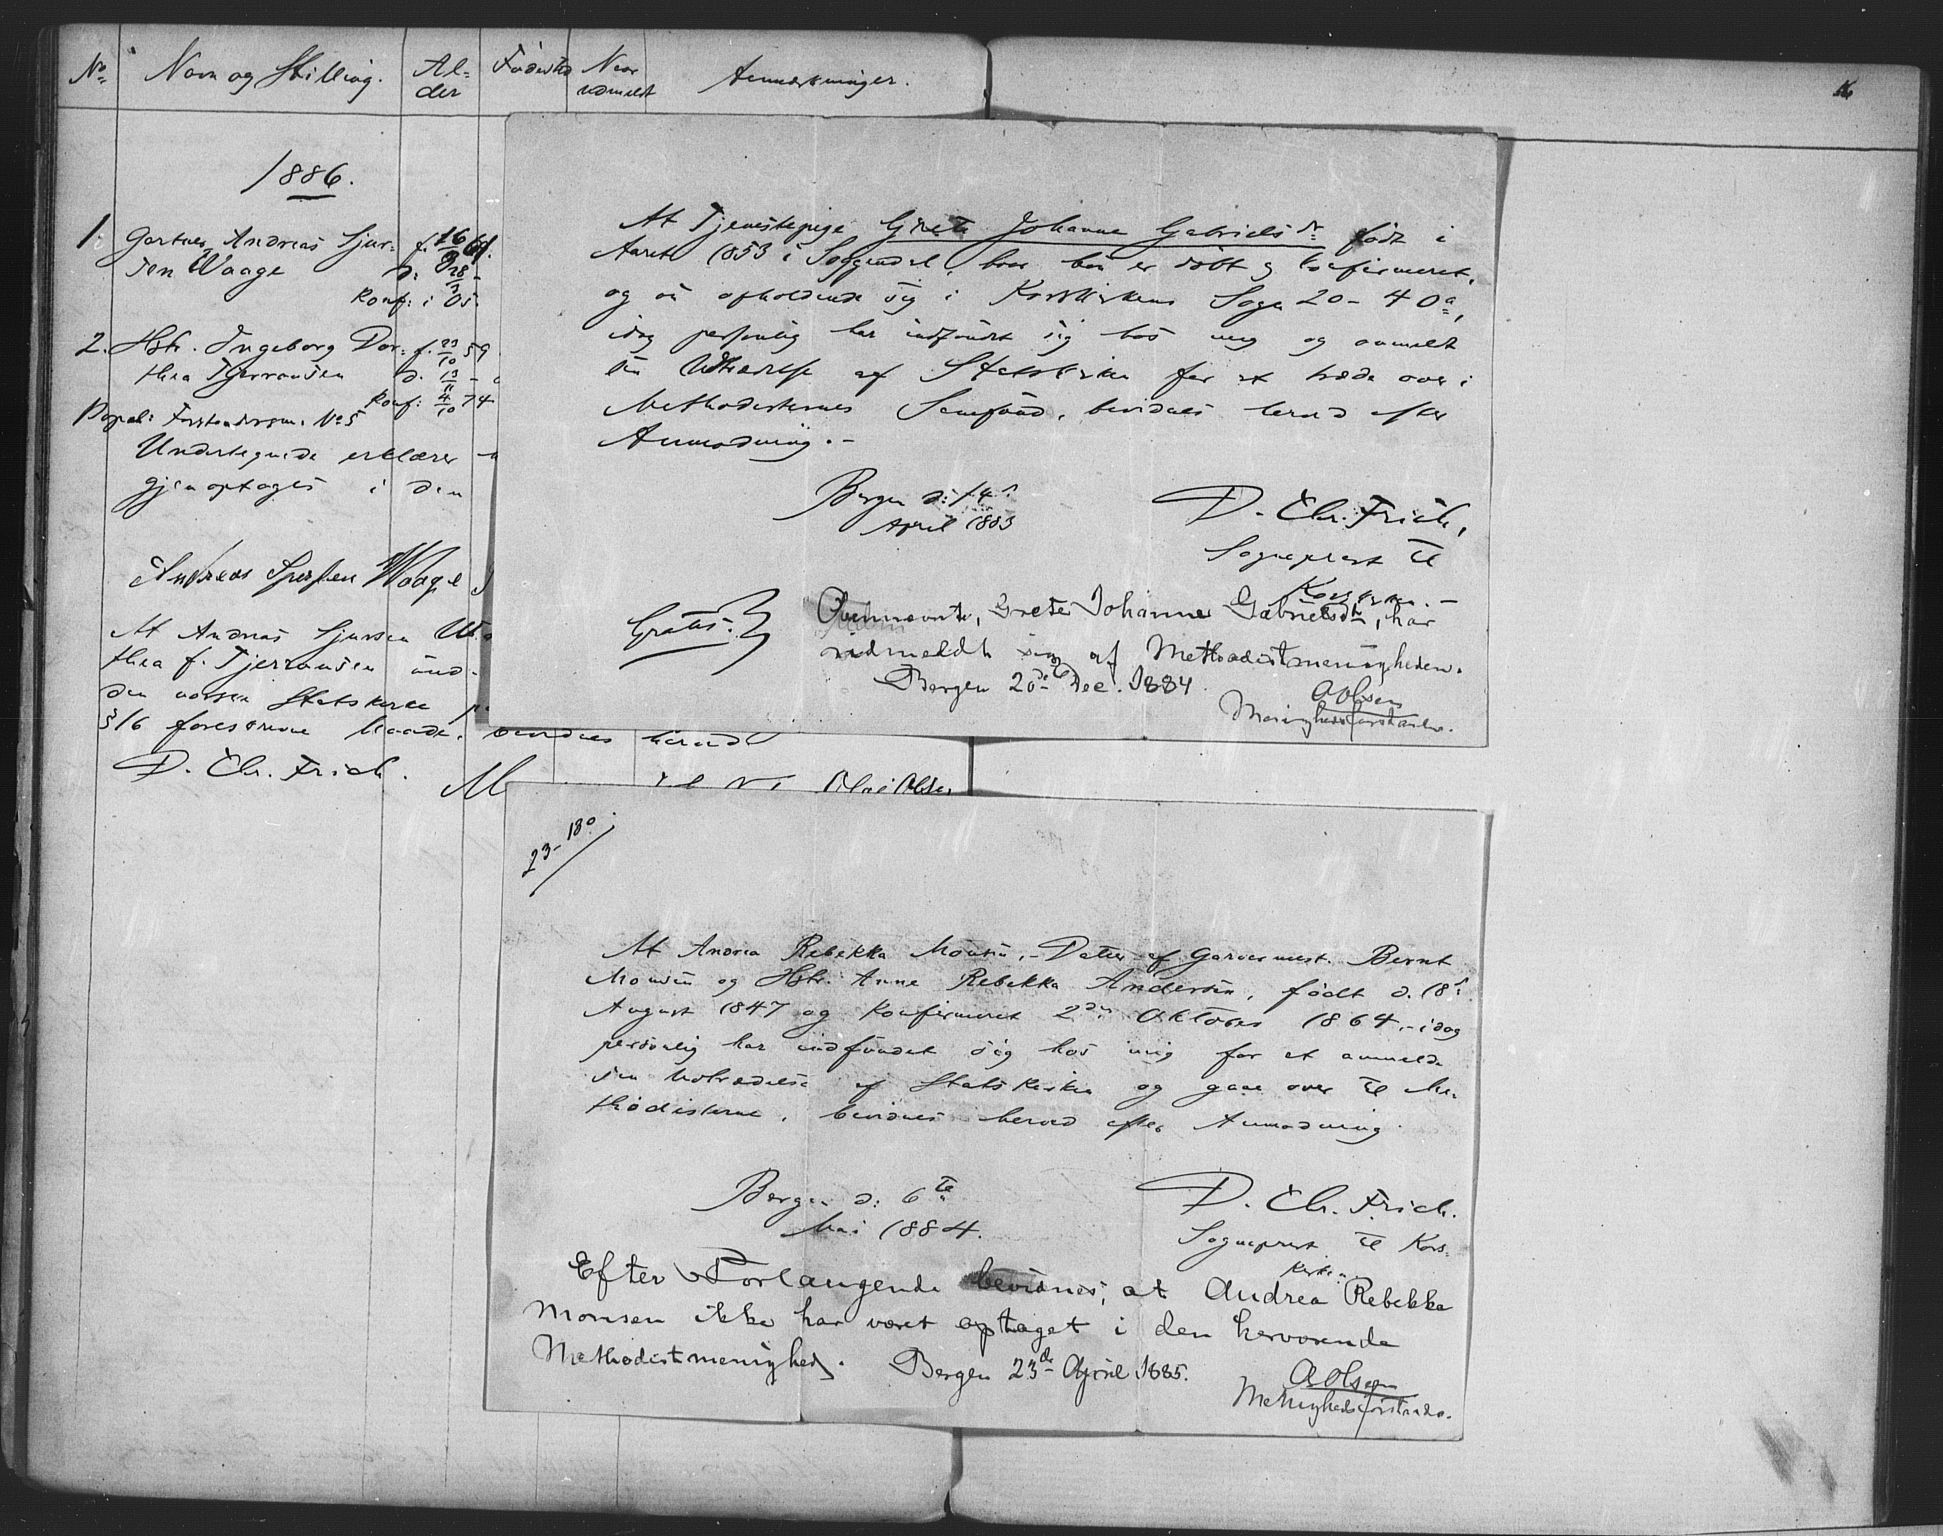 No Navn og Stilling. Al- Fødested Naar Anmærkninger.
der udmeldt
16
1886.
1. Gartner Andreas Sjur= f. 16
sen Waage d.
Konf: i
2. Hstr. Ingeborg Dor= f. 23/10 59
thea Tjerransen d.
Konf: 4/10 74
Undertegnede erklærer
gjenoptages i den
Andreas Sjursen Waage
At Andreas Sjursen
thea f. Tjerransen ind-
den norske Statskirke
§ 16 foreskrevne Maade, bevidnes herved
D. Chr. Frich.
Olai Olsen
At Tjenestepige Grete Johanne Gabrielsdr født i
Aaret 1853 i Soggendal, hvor hun er døbt og konfirmeret,
og nu opholdende sig i Korskirkens Sogn 20- 40a,
idag personlig har indfundet sig hos mig og anmeldt
sin Udtrædelse af Statskirken for at træde over i
Methodisternes Samfund, bevidnes herved efter
Anmodning.-
Bergen d: 14
April 1883
D. Chr. Frich,
Sogneprest til
Korskirken.-
Gratis.
Ovennævnte, Grete Johanne Gabrielsdtr, har
udmeldt sig af Methodistmenigheden.
Bergen 20de Dec. 1884.
A Olsen
Menighedsforstander.
23- 18o
At Andrea Rebekka Monsen,- Datter af Garvermest. Bernt
Monsen og Hstr. Anne Rebekka Andersen, født d. 18
August 1847 og konfirmeret 2den Oktober 1864,- idag
personlig har indfundet sig hos mig for at anmelde
sin Udtrædelse af Statskirken og gaae over til Me-
thodisterne, bevidnes herved efter Anmodning
Bergen d: 6te
Mai 1884.
D. Chr. Frich.
Sogneprest til Kors=
kirken
Efter Forlangende bevidnes, at Andrea Rebekka
Monsen ikke har været optaget i den herværende
Methodistmenighed. Bergen 23de April 1885.
A Olsen
Menighedsforstander.